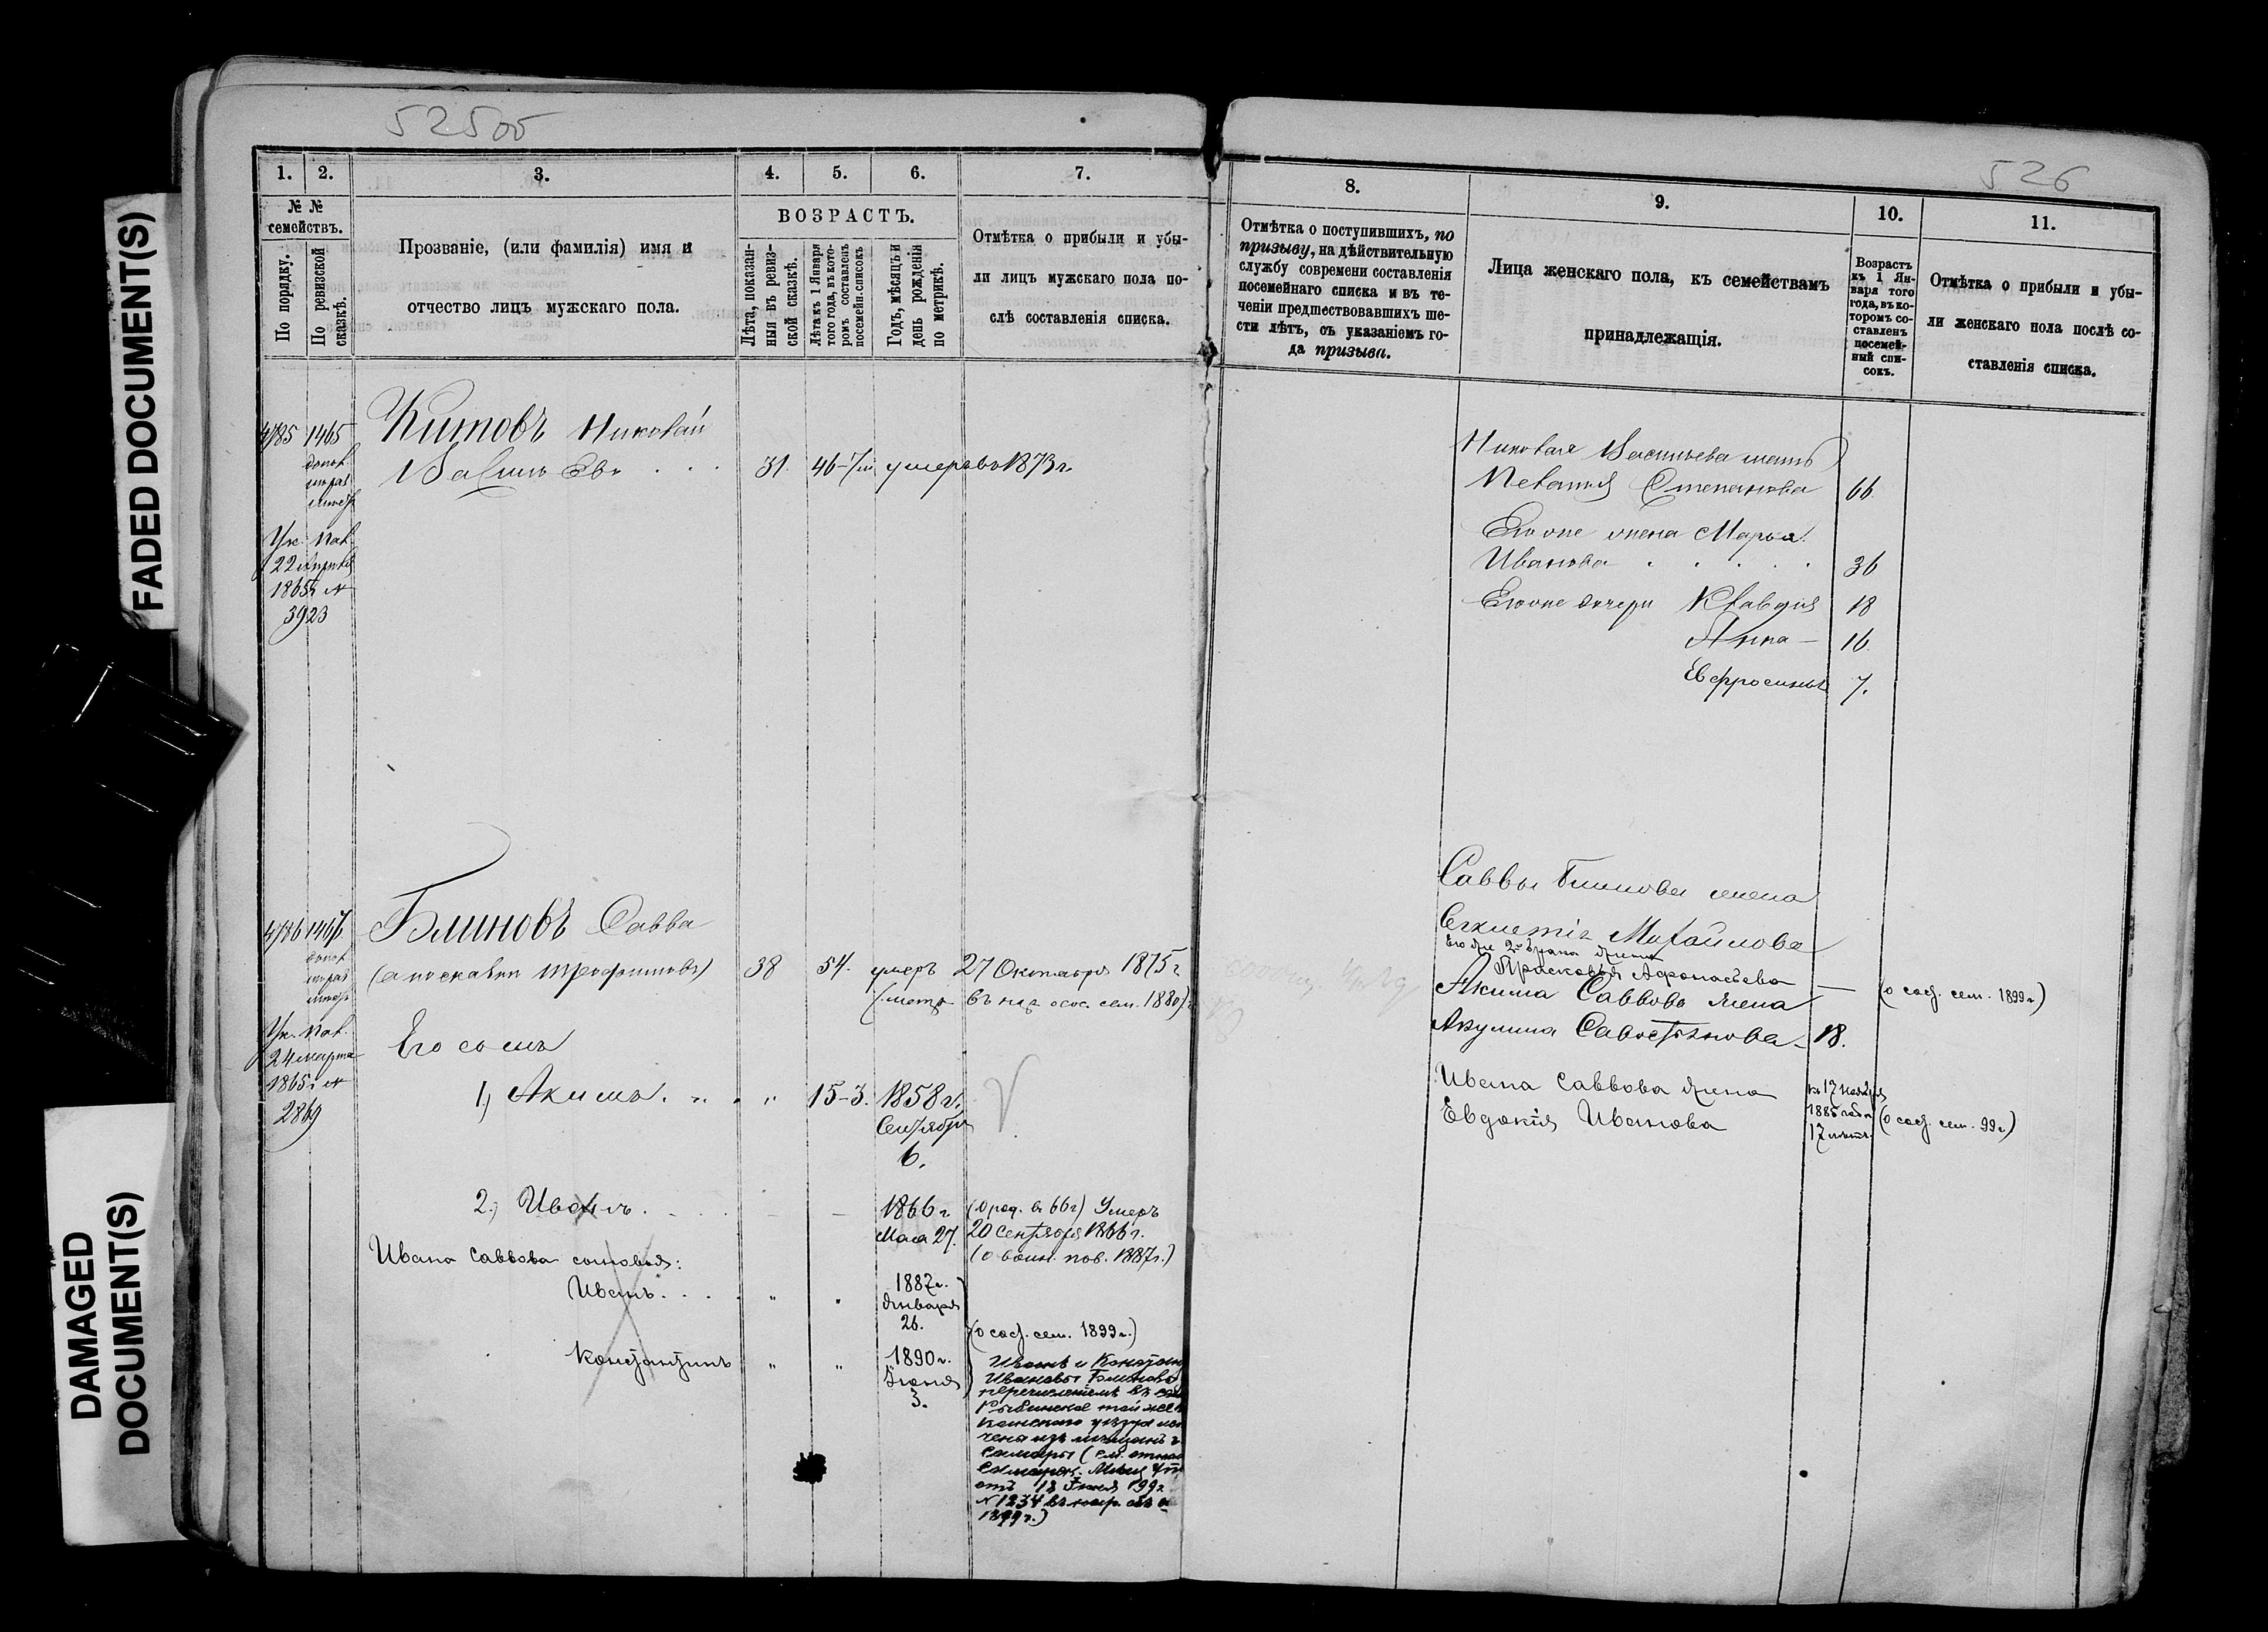 FADED DOCUMENT(S)
DAMAGED
DOCUMENT(S)
525об
1. 2. 3. 4. 5. 6. 7.
№ №
семействъ.
По порядку.
По ревизской
сказкѣ.
Прозваніе, (или фамилія) имя и
отчество лицъ мужскаго пола.
ВОЗРАСТЪ.
Лѣта, показан-
ныя въ ревиз-
ской сказкѣ.
Лѣта къ 1 Января
того года, въ кото-
ромъ составленъ
посемейн. списокъ
Годъ, мѣсяцъ и
день рожденія
по метрикѣ.
Отмѣтка о прибыли и убы-
ли лицъ мужскаго пола по-
слѣ составленія списка.
4785 1465
Китовъ Николай
Василь Евъ . . . 31. 46 умеръ въ 1873 г.
Ук. Пал.
22 Апрѣля
1865 г. №
3923
4786 1467
Блиновъ Савва
(а по сказкѣ Трофимовъ) 38 54. умеръ 27 Октября 1875 г.
Ук. Пал.
24 марта
1865 г. №
2869
Его сынъ
1, Акимъ. „ . „ 15-3. 1858 г.
Сентября
6.
2, Иванъ. 1866 г. (о род. в 66 г) Умеръ
Мая 27. 20 Сентября 1866 г.
(о воин. пов. 1887 г.)
Ивана Саввова сыновья:
Иванъ . . . . „ . 1887 г.
Января
26.
(о сост. сем. 1899 г.)
Константинъ „ „ 1890 г.
Іюня
3.
Иванъ и Констан
Ивановы Блиновы
перечисленіемъ въ
Рыбинское той же
чены изъ мѣщанъ г
Самары
отъ 18 Іюня 1992
№ 1234
1899 г.)
526
8. 9. 10. 11.
Отмѣтка о поступившихъ, по
призыву, на дѣйствительную
службу современи составленія
посемейнаго списка и въ те-
ченіи предшествовавшихъ ше-
сти лѣтъ, съ указаніемъ го-
да призыва.
Лица женскаго пола, къ семействамъ
принадлежащія.
Возрастъ
къ 1 Ян-
варя того
года, въ ко-
торомъ со-
ставленъ
посемей-
ный спи-
сокъ.
Отмѣтка о прибыли и убы-
ли женскаго пола послѣ со-
ставленія списка.
Николая Васильева мать
Пелагія Степанова 66.
Его же жена Марья
Иванова . . . . . 36
Его же дочери Клавдія 18
Анна — 16.
Евфросинья 7.
Саввы Блинова жена
Михайлова
Его же 2го брака жена
Прасковья Афонасьева
Акима Саввова жена — (о сост. сем. 1899 г)
Акулина Савостьянова — 18.
Ивана Саввова жена къ 17 Ноября
Евдокія Иванова 1885 года (о сост. сем. 99 г)
17 лѣтъ.